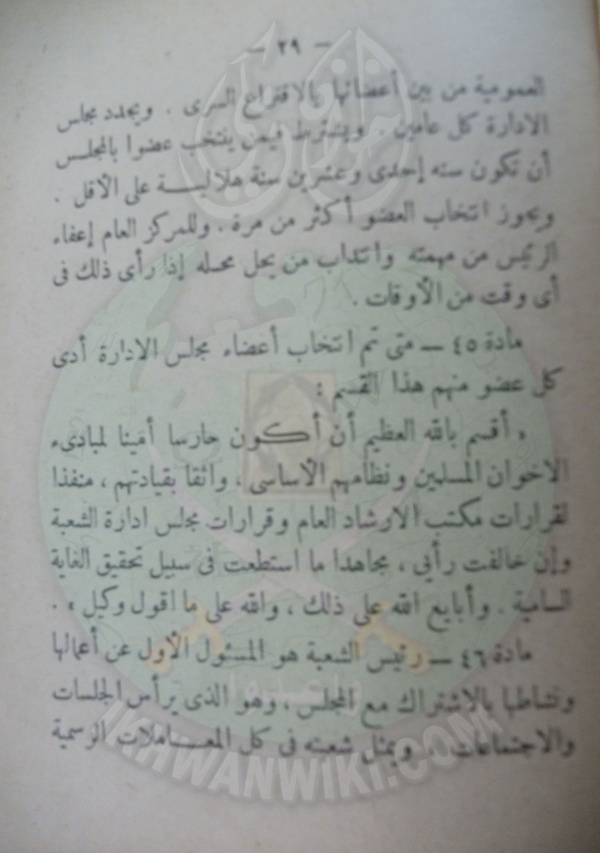 — ٢٩ —
العمومية من بين أعضائها بالاقتراع السرى . ويجدد مجلس
الادارة كل عامين . ويشترط فيمن ينتخب عضوا بالمجلس
أن تكون سنه إحدى وعشرين سنة هلالية على الأقل .
ويجوز انتخاب العضو أكثر من مرة . وللمركز العام إعفاء
الرئيس من مهمته وانتداب من يحل محله إذا رأى ذلك فى
أى وقت من الأوقات .
مادة ٤٥ — متى تم انتخاب أعضاء مجلس الادارة أدى
كل عضو منهم هذا القسم :
« أقسم بالله العظيم أن أكون حارسا أمينا لمبادىء
الاخوان المسلمين ونظامهم الأساسى ، واثقا بقيادتهم ، منفذا
لقرارات مكتب الارشاد العام وقرارات مجلس ادارة الشعبة
وإن خالفت رأيى ، مجاهدا ما استطعت فى سبيل تحقيق الغاية
السامية . وأبايع الله على ذلك ، والله على ما اقول وكيل » .
مادة ٤٦ — رئيس الشعبة هو المسئول الأول عن أعمالها
ونشاطها بالاشتراك مع المجلس ، وهو الذى يرأس الجلسات
والاجتماعات . ويمثل شعبته فى كل المعاملات الرسمية
IKHWANWIKI.COM